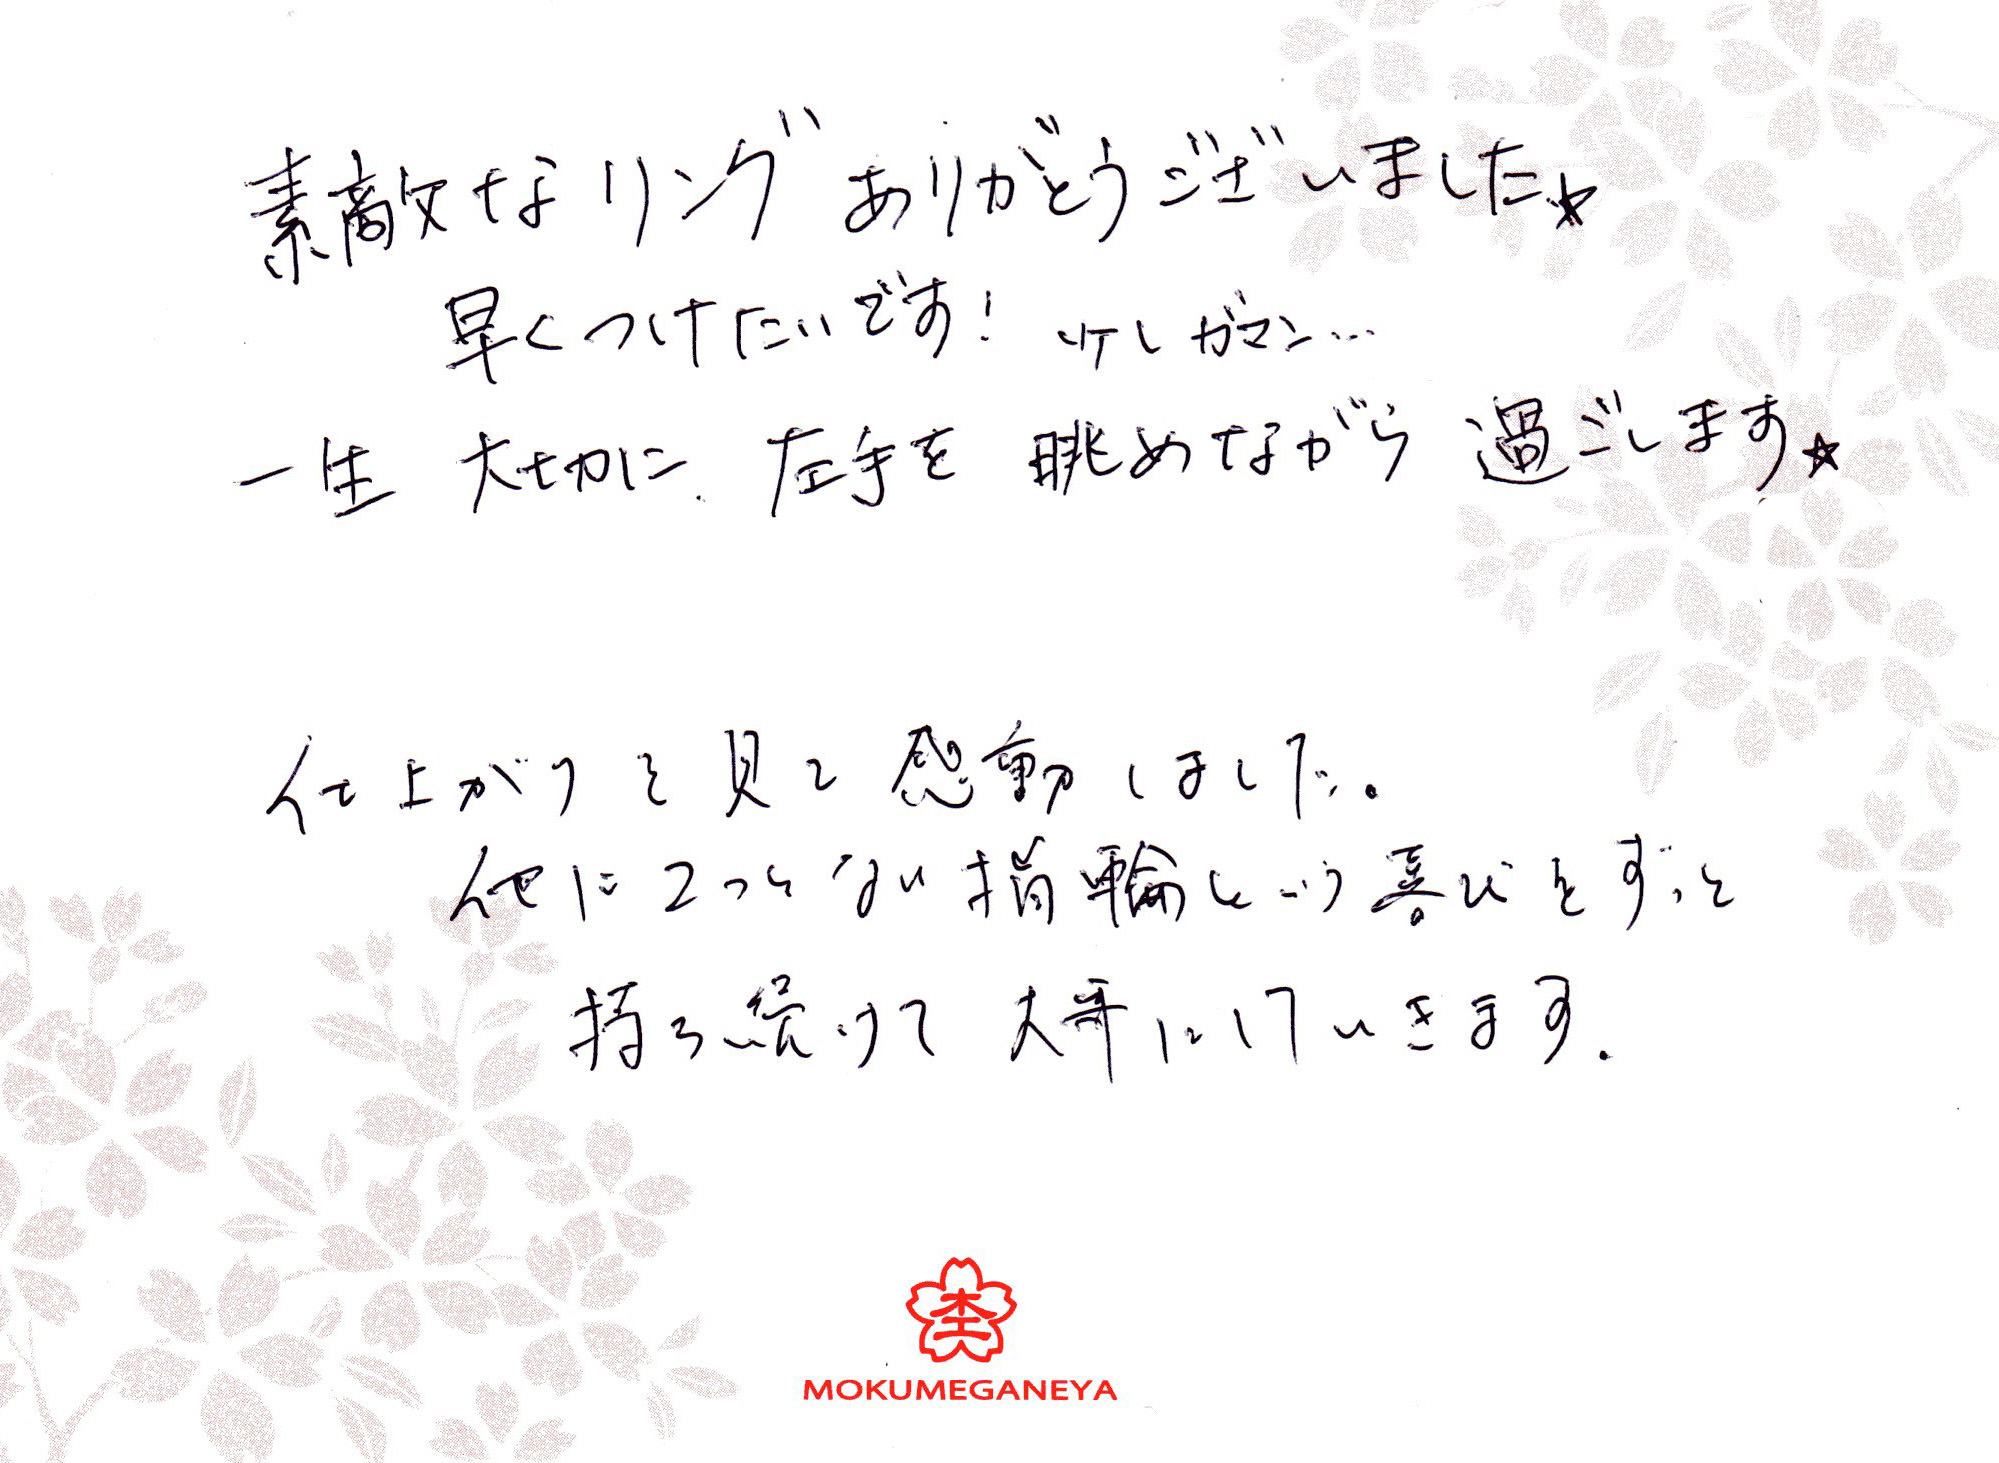 素敵なリング ありがとうございました☆
早くつけたいです! 少しガマン…
一生 大切に、左手を 眺めながら 過ごします☆
仕上がりを見て感動しました。
他に2つとない指輪という喜びをずっと
持ち続けて 大事にしていきます。
杢
MOKUMEGANEYA